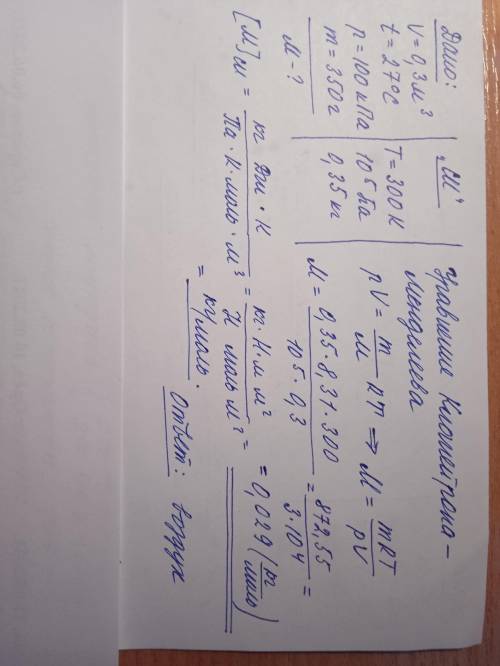 Дано:
V = 0,3 м³
t = 27°C
p = 100 кПа
m = 350 г
М - ?
"СИ"
T = 300 К
10⁵ Па
0,35 кг
Уравнение Клапейрона -
Менделеева
pV = m/М RT ⇒ М = mRT/pV
М = 0,35 · 8,31 · 300 / 10⁵ · 0,3 = 872,55 / 3 · 10⁴ =
= 0,029 (кг/моль)
[М]си = кг Дж · К / Па · К · моль · м³ = кг · Н · м м² / Н моль м³ =
= кг/моль.
Ответ: воздух